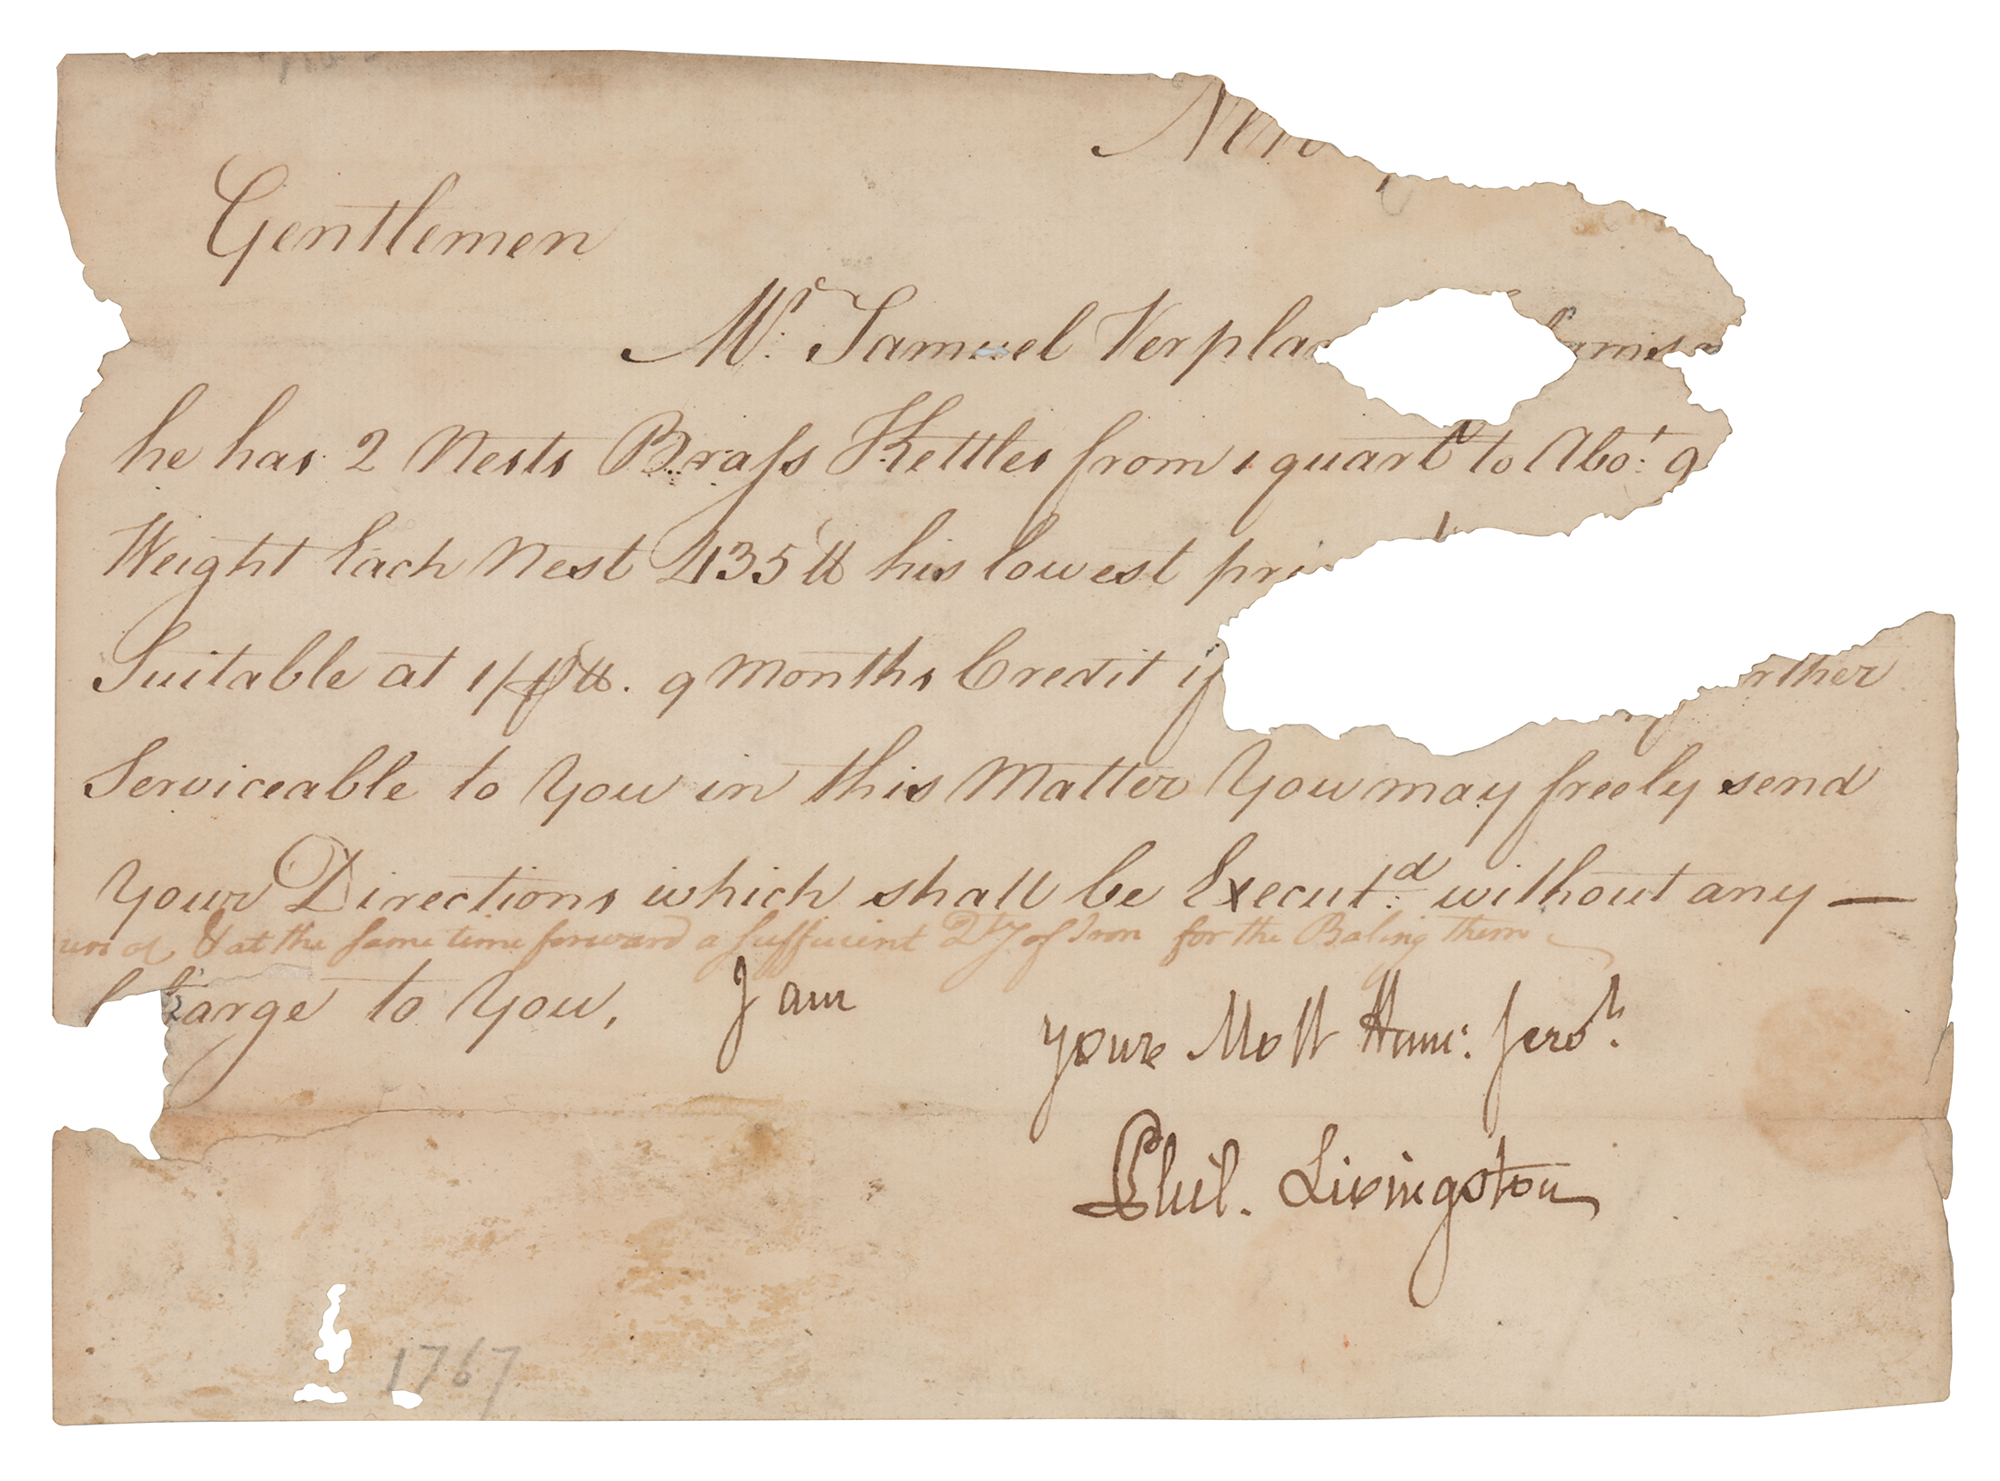 New
Gentlemen
Mr. Samuel Verpla
he has 2 Nests Brass Kettles from 1 quart to Abot. 9
Weight Each Nest 435 lb his lowest pri
Suitable at 9 Months Credit if rther
Serviceable to You in this Matter You may freely send
Your Directions which shall be Execut.d without any —
& at the same time forward a sufficient Qty of Iron for the Baling them
Charge to You, I am
your Most Hum: Serv.t
Phil. Livingston
1767